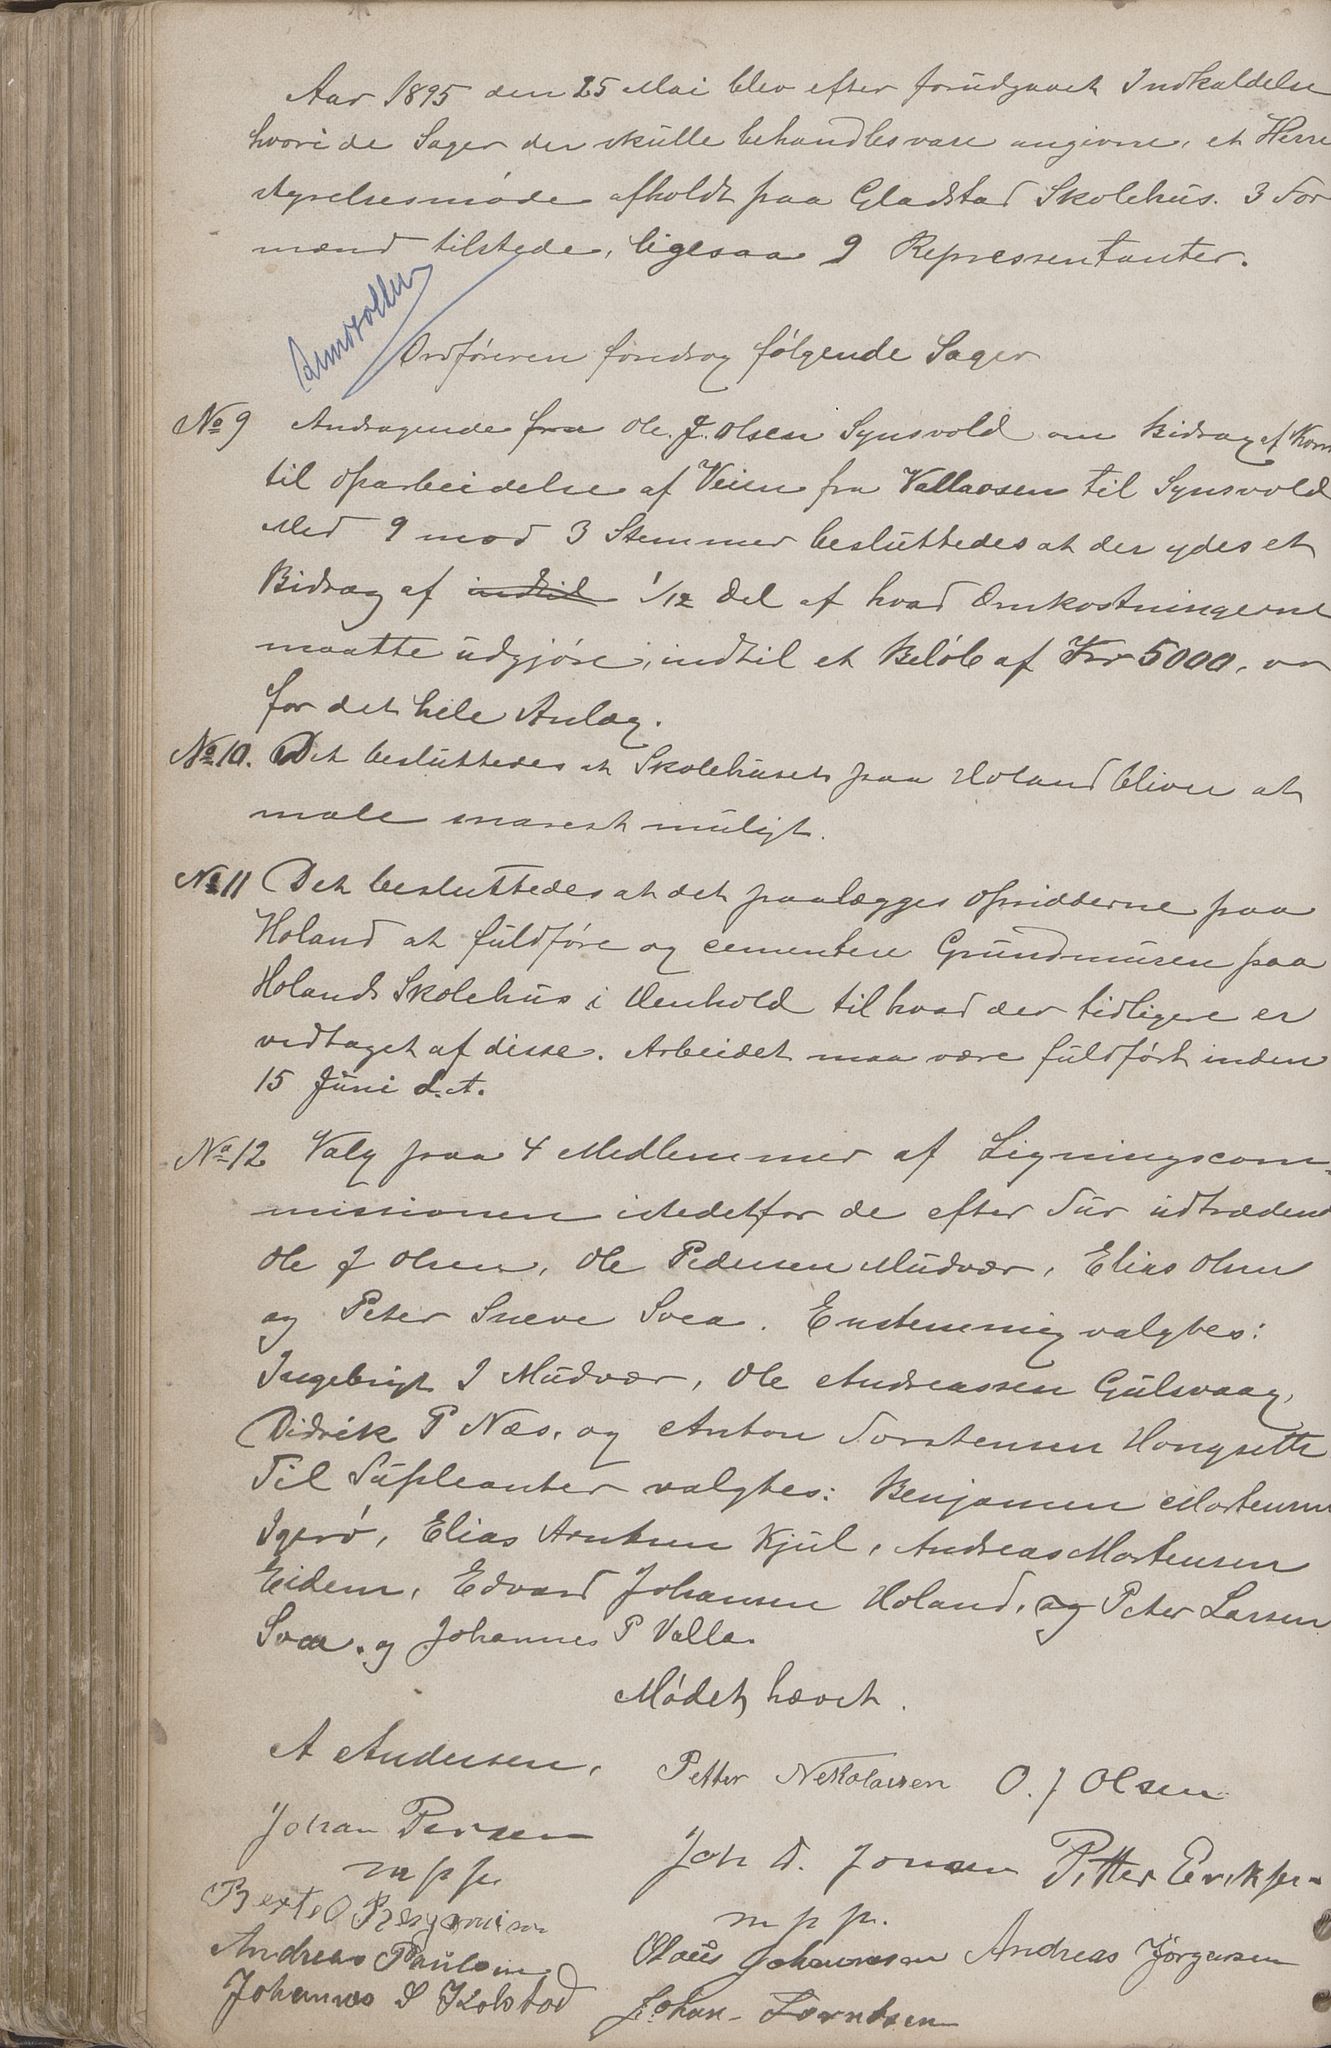 Aar 1895 den 25 Mai blev efter forudgaaet Indkaldelse
hvori de Sager der skulle behandles vare angivne, et Herre
styrelsesmøde afholdt paa Gladstad Skolehus. 3 For
mænd tilstede, ligesaa 9 Repressentanter.
Ordføreren foredrog følgende Sager
No 9 Andragende fra Ole J. Olsen Synsvold om Bidrag af Kom
til oparbeidelse af Veien fra Vallaosen til Synsvold
Med 9 mod 3 Stemmer besluttedes at der ydes et
Bidrag af indtil 1/12 Del af hvad Omkostningerne
maatte udgjøre, indtil et Beløb af Kr 5000,
for det hele Anlæg.
No 10. Det besluttedes at Skolehuset paa Holand bliver at
male snarest muligt.
No 11 Det besluttedes at det paalægges Opsidderne paa
Holand at fuldføre og cementere Grundmuren paa
Holands Skolehus i Henhold til hvad der tidligere er
vedtaget af disse. Arbeidet maa være fuldført inden
15 Juni d. A.
No 12 Valg paa 4 Medlemmer af Ligningscom-
missionen istedetfor de efter Tur udtrædend
Ole J Olsen, Ole Pedersen Mudvær, Elias Olsen
og Peter Sneve Svea. Enstemmig valgtes:
Ingebrigt J Mudvær, Ole Andreassen Gulsvaag,
Didrik P Næs, og Anton Torstensen Hongsett
Til Supleanter valgtes: Benjamin Mortensen
Igerø, Elias Arntsen Kjul, Andreas Mortensen
Eidem, Edvard Johansen Holand, og Peter Larsen
Svea. og Johannes P Valla.
Mødet hævet.
A Andersen, Petter Nekolaisen O. J Olsen
Johan Persen Joh D. Jonsen Pitter Eriksen
m p p. m p p.
Bertel Benjaminsen Olaus Johannesen Andreas Jørgensen
Andreas Paulsen
Johannes S Kolstad Johan Berntsen